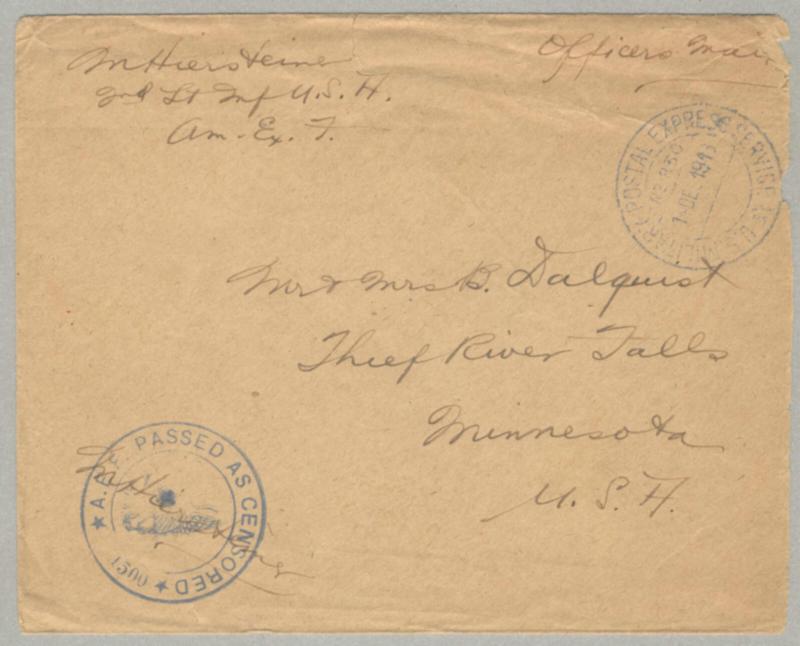 M Hiersteiner
2nd Lt Inf U.S.A.
Am. Ex. F.
Officers Mail
MILITARY POSTAL EXPRESS SERVICE U.S.
No 850
1 DE. 1918
Mr & Mrs B. Dalquist
Thief River Falls
Minnesota
U. S. A.
★ A.E.F. PASSED AS CENSORED ★
1500
M Hiersteiner